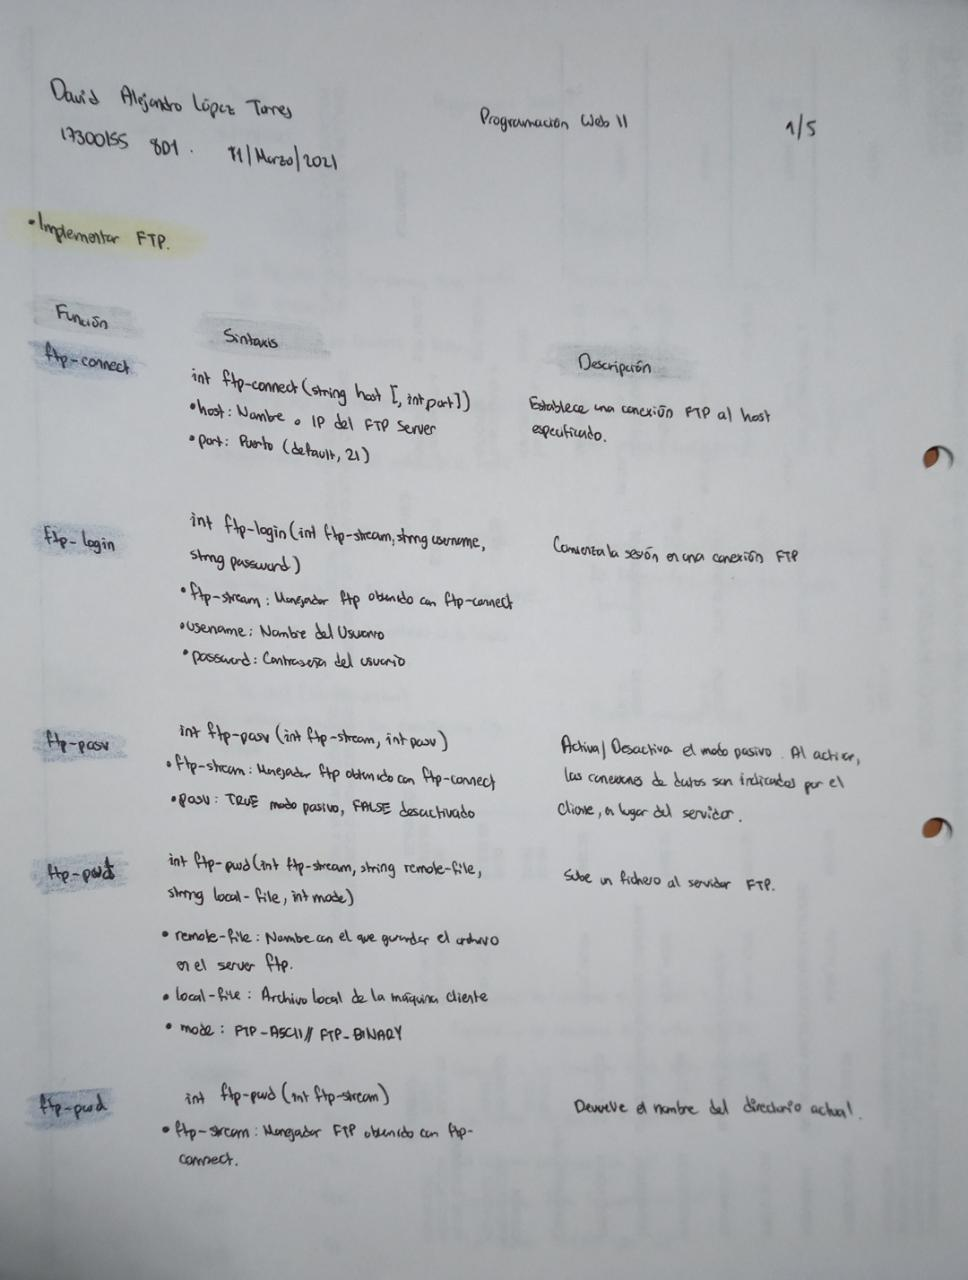 David Alejandro López Torres
Programación Web II
1/5
17300155 801. 11/Marzo/2021
• Implementar FTP.
Función
Sintaxis
Descripción
ftp-connect
int ftp-connect (string host [, int port])
• host: Nombre o IP del FTP Server
• port: Puerto (default, 21)
Establece una conexión FTP al host
especificado.
ftp-login
int ftp-login (int ftp-stream, string username,
string password)
• ftp-stream: Manejador ftp obtenido con ftp-connect
• username: Nombre del Usuario
• password: Contraseña del usuario
Comienza la sesión en una conexión FTP
ftp-pasv
int ftp-pasv (int ftp-stream, int pasv)
• ftp-stream: Manejador ftp obtenido con ftp-connect
• pasv: TRUE modo pasivo, FALSE desactivado
Activa/Desactiva el modo pasivo. Al activar,
las conexiones de datos son indicadas por el
cliente, en lugar del servidor.
int ftp-pwd (int ftp-stream, string remote-file,
string local-file, int mode)
• remote-file: Nombre con el que guardar el archivo
en el server ftp.
• local-file: Archivo local de la máquina cliente
• mode: FTP-ASCII // FTP-BINARY
Sube un fichero al servidor FTP.
ftp-pwd
int ftp-pwd (int ftp-stream)
• ftp-stream: Manejador FTP obtenido con ftp-
connect.
Devuelve el nombre del directorio actual.